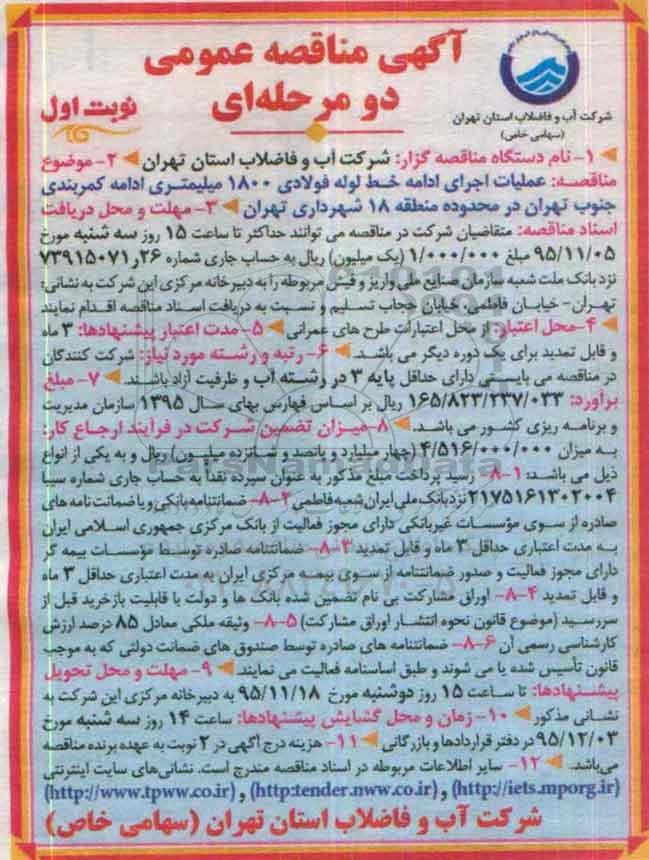 آگهی مناقصه عمومی
دو مرحله‌ای
نوبت اول
شرکت آب و فاضلاب استان تهران
(سهامی خاص)
۱- نام دستگاه مناقصه گزار: شرکت آب و فاضلاب استان تهران ۲- موضوع
مناقصه: عملیات اجرای ادامه خط لوله فولادی ۱۸۰۰ میلیمتری ادامه کمربندی
جنوب تهران در محدوده منطقه ۱۸ شهرداری تهران ۳- مهلت و محل دریافت
اسناد مناقصه: متقاضیان شرکت در مناقصه می توانند حداکثر تا ساعت ۱۵ روز سه شنبه مورخ
۹۵/۱۱/۰۵ مبلغ ۱/۰۰۰/۰۰۰ (یک میلیون) ریال به حساب جاری شماره ۲۶ر۷۳۹۱۵۰۷۱
نزد بانک ملت شعبه سازمان صنایع ملی واریز و فیش مربوطه را به دبیرخانه مرکزی این شرکت به نشانی:
تهران- خیابان فاطمی، خیابان حجاب تسلیم و نسبت به دریافت اسناد مناقصه اقدام نمایند
۴-محل اعتبار: از محل اعتبارات طرح های عمرانی ۵- مدت اعتبار پیشنهادها: ۳ ماه
و قابل تمدید برای یک دوره دیگر می باشد. ۶- رتبه و رشته مورد نیاز: شرکت کنندگان
در مناقصه می بایستی دارای حداقل پایه ۳ در رشته آب و ظرفیت آزاد باشند. ۷- مبلغ
برآورد: ۱۶۵/۸۲۳/۲۳۷/۰۳۳ ریال بر اساس فهارس بهای سال ۱۳۹۵ سازمان مدیریت
و برنامه ریزی کشور می باشد. ۸-میزان تضمین شرکت در فرایند ارجاع کار:
به میزان ۴/۵۱۶/۰۰۰/۰۰۰ (چهار میلیارد و پانصد و شانزده میلیون) ریال و به یکی از انواع
ذیل می باشد: ۸-۱- رسید پرداخت مبلغ مذکور به عنوان سپرده نقداً به حساب جاری شماره سیبا
۲۱۷۵۱۶۱۳۰۲۰۰۴ نزد بانک ملی ایران شعبه فاطمی ۸-۲- ضمانتنامه بانکی و یا ضمانت نامه های
صادره از سوی مؤسسات غیربانکی دارای مجوز فعالیت از بانک مرکزی جمهوری اسلامی ایران
به مدت اعتباری حداقل ۳ ماه و قابل تمدید ۸-۳- ضمانتنامه صادره توسط مؤسسات بیمه گر
دارای مجوز فعالیت و صدور ضمانتنامه از سوی بیمه مرکزی ایران به مدت اعتباری حداقل ۳ ماه
و قابل تمدید ۸-۴- اوراق مشارکت بی نام تضمین شده بانک ها و دولت با قابلیت بازخرید قبل از
سررسید (موضوع قانون نحوه انتشار اوراق مشارکت) ۸-۵- وثیقه ملکی معادل ۸۵ درصد ارزش
کارشناسی رسمی آن ۸-۶- ضمانتنامه های صادره توسط صندوق های ضمانت دولتی که به موجب
قانون تأسیس شده یا می شوند و طبق اساسنامه فعالیت می نمایند. ۹- مهلت و محل تحویل
پیشنهادها: تا ساعت ۱۵ روز دوشنبه مورخ ۹۵/۱۱/۱۸ به دبیرخانه مرکزی این شرکت به
نشانی مذکور ۱۰- زمان و محل گشایش پیشنهادها: ساعت ۱۴ روز سه شنبه مورخ
۹۵/۱۲/۰۳ در دفتر قراردادها و بازرگانی ۱۱- هزینه درج آگهی در ۲ نوبت به عهده برنده مناقصه
می‌باشد. ۱۲- سایر اطلاعات مربوطه در اسناد مناقصه مندرج است. نشانی‌های سایت اینترنتی
(http://iets.mporg.ir) و (http:tender.nww.co.ir) و (http://www.tpww.co.ir)
شرکت آب و فاضلاب استان تهران (سهامی خاص)
ParsNamadData